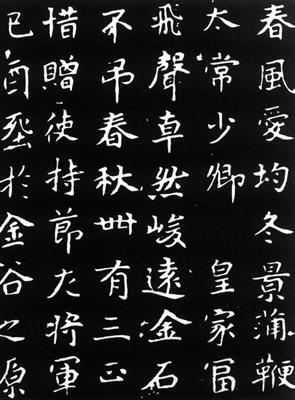 春風愛均冬景蒲鞭
太常少卿 皇家冨
飛聲卓然峻遠金石
不弔春秋卌有三正
惜贈使持節大將軍
已酉塟於金谷之原